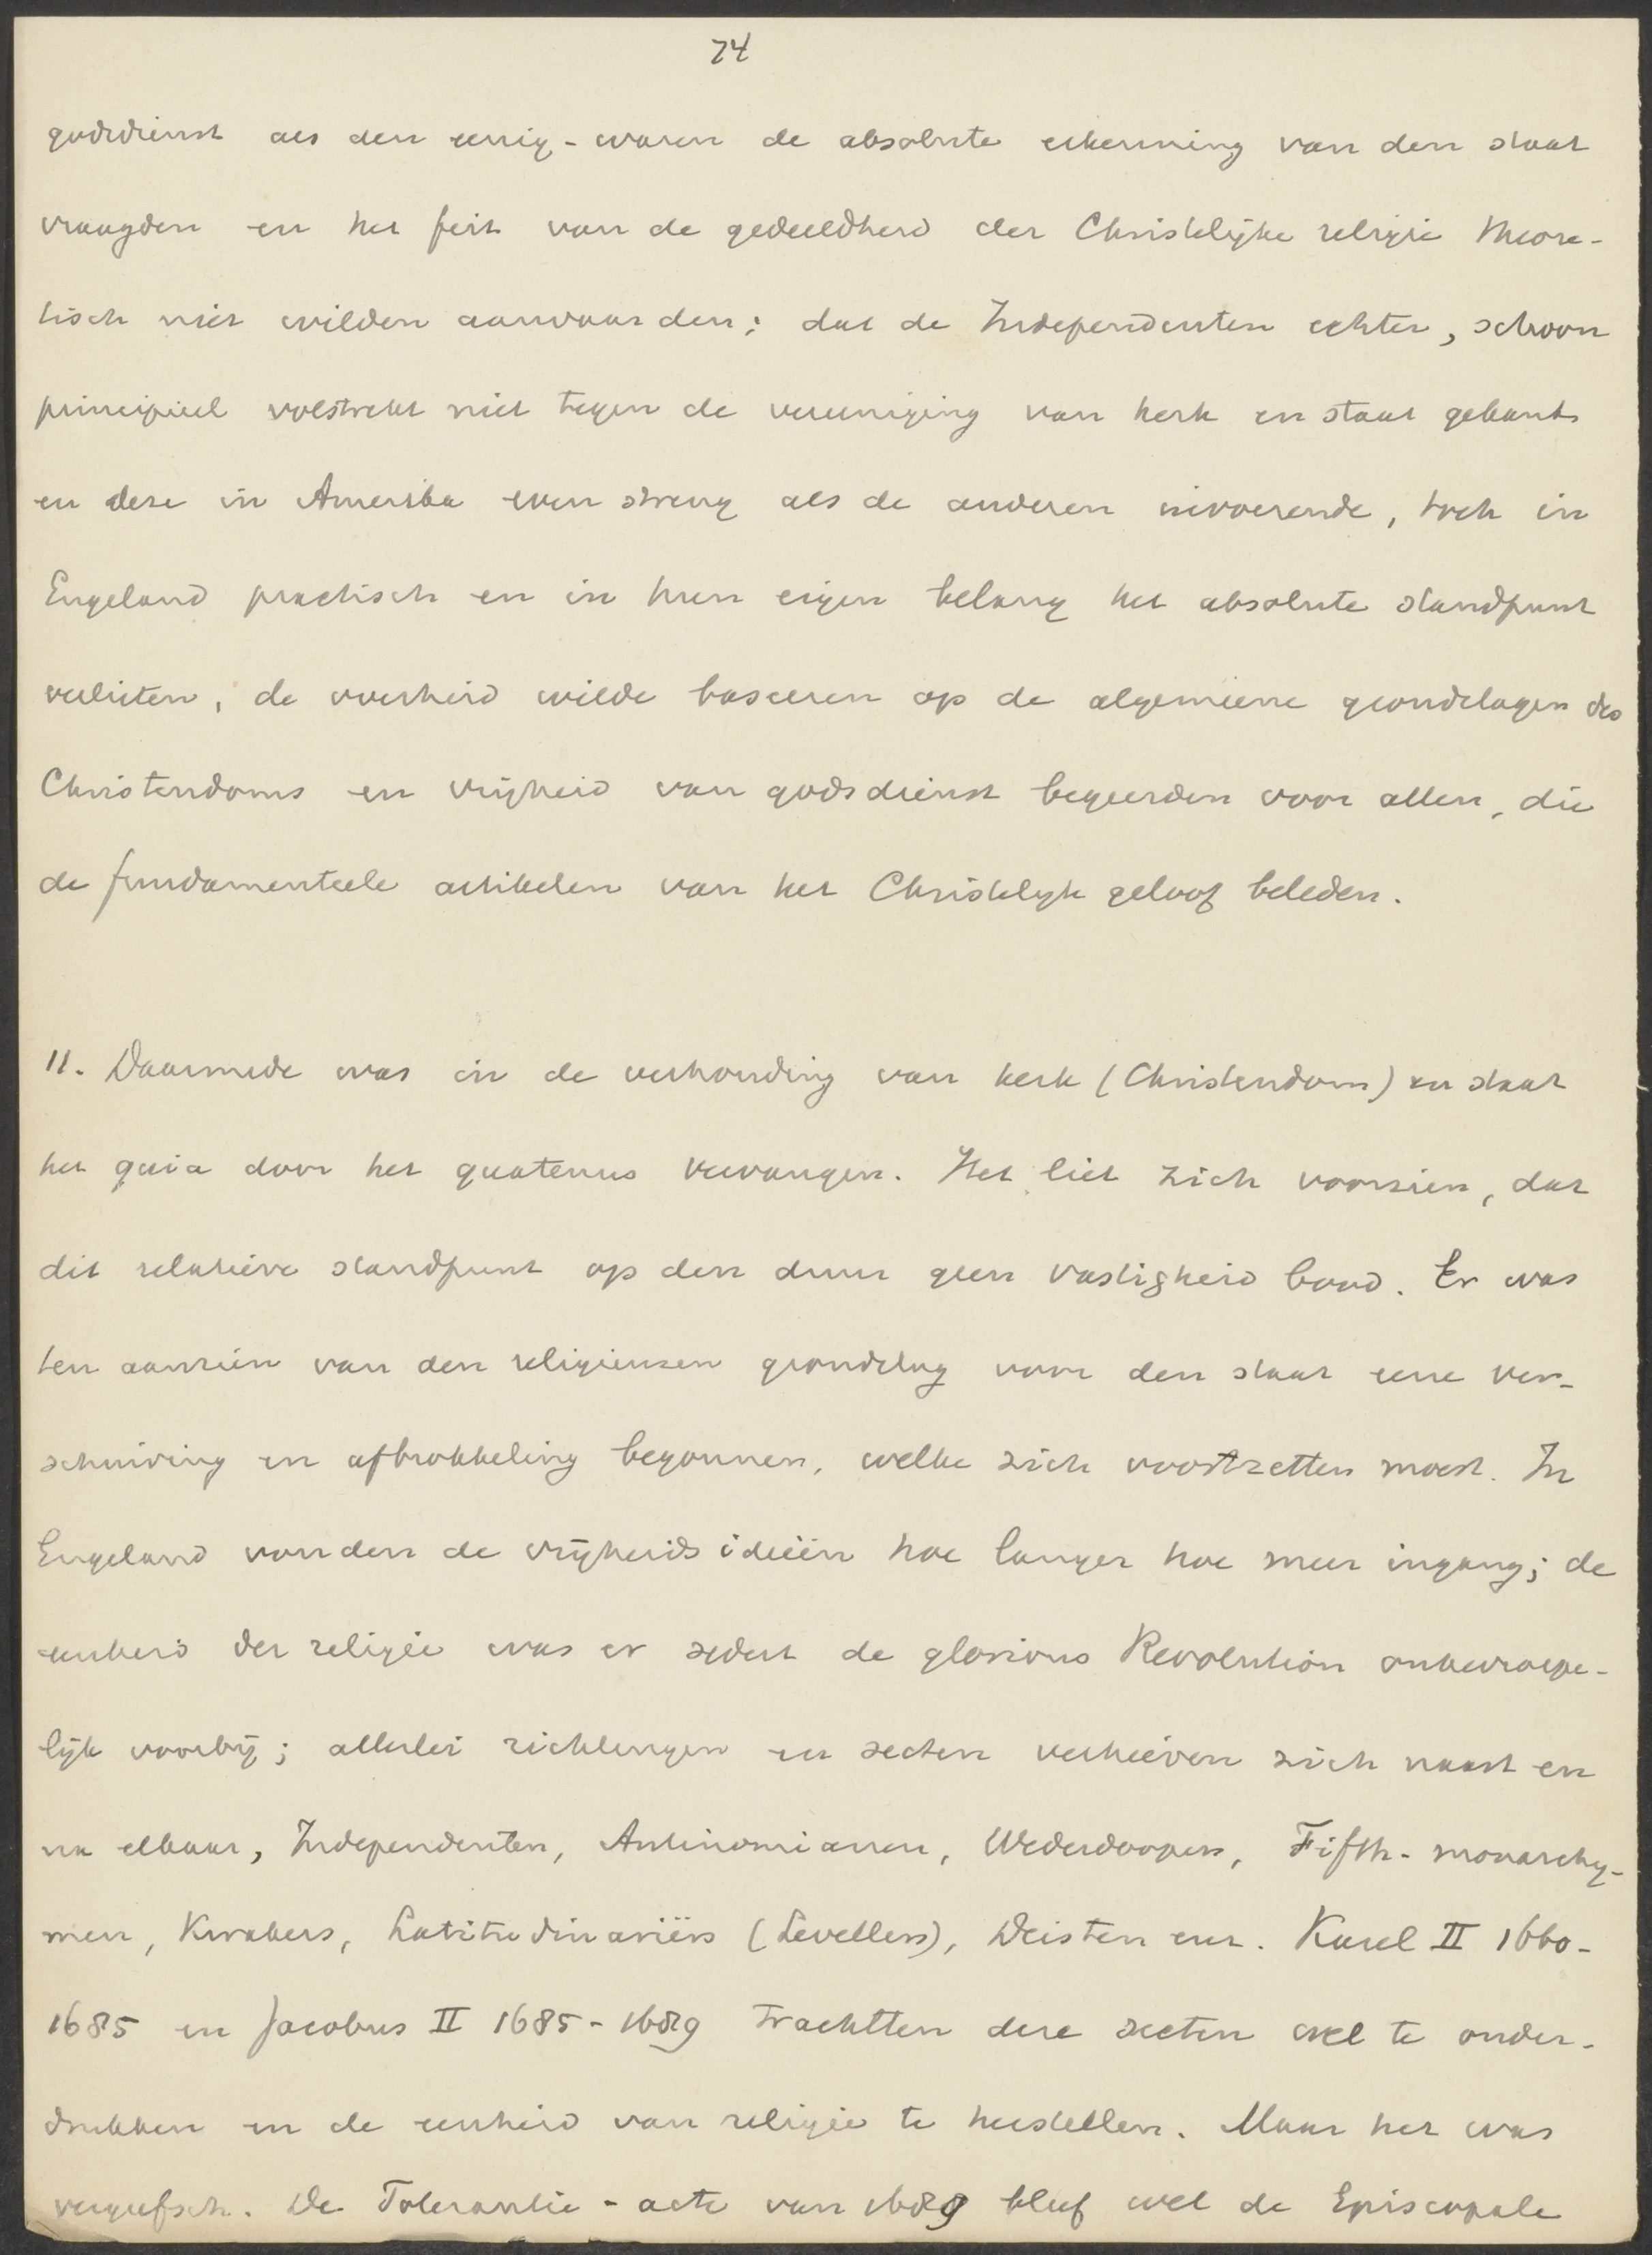 74
godsdienst als den eenig-waren de absolute erkenning van den staat
vraagden en het feit van de gedeeldheid der Christelijke religie theore-
tisch niet wilden aanvaarden; dat de Independenten echter, schoon
principieel volstrekt niet tegen de vereeniging van kerk en staat gekant
en deze in Amerika even streng als de anderen invoerende, toch in
Engeland practisch en in hun eigen belang het absolute standpunt
verlieten, de overheid wilde baseeren op de algemeene grondslagen des
Christendoms en vrijheid van godsdienst begeerden voor allen, die
de fundamenteele artikelen van het Christelijk geloof beleden.
11. Daarmede was in de verhouding van kerk (Christendom) en staat
het quia door het quatenus vervangen. Het liet zich voorzien, dat
dit relatieve standpunt op den duur geen vastigheid bood. Er was
ten aanzien van den religieuzen grondslag voor den staat eene ver-
schuiving en afbrokkeling begonnen, welke zich voortzetten moest. In
Engeland vonden de vrijheidsideeën hoe langer hoe meer ingang; de
eenheid der religie was er sedert de glorious Revolution onherroepe-
lijk voorbij; allerlei richtingen en secten verhieven zich naast en
na elkaar, Independenten, Antinomianen, Wederdoopers, Fifth-monarchy-
men, Kwakers, Latitudinariërs (Levellers), Deisten enz. Karel II 1660-
1685 en Jacobus II 1685-1689 trachtten deze secten wel te onder-
drukken en de eenheid van religie te herstellen. Maar het was
vergeefsch. De Tolerantie-acte van 1689 bleef wel de Episcopale